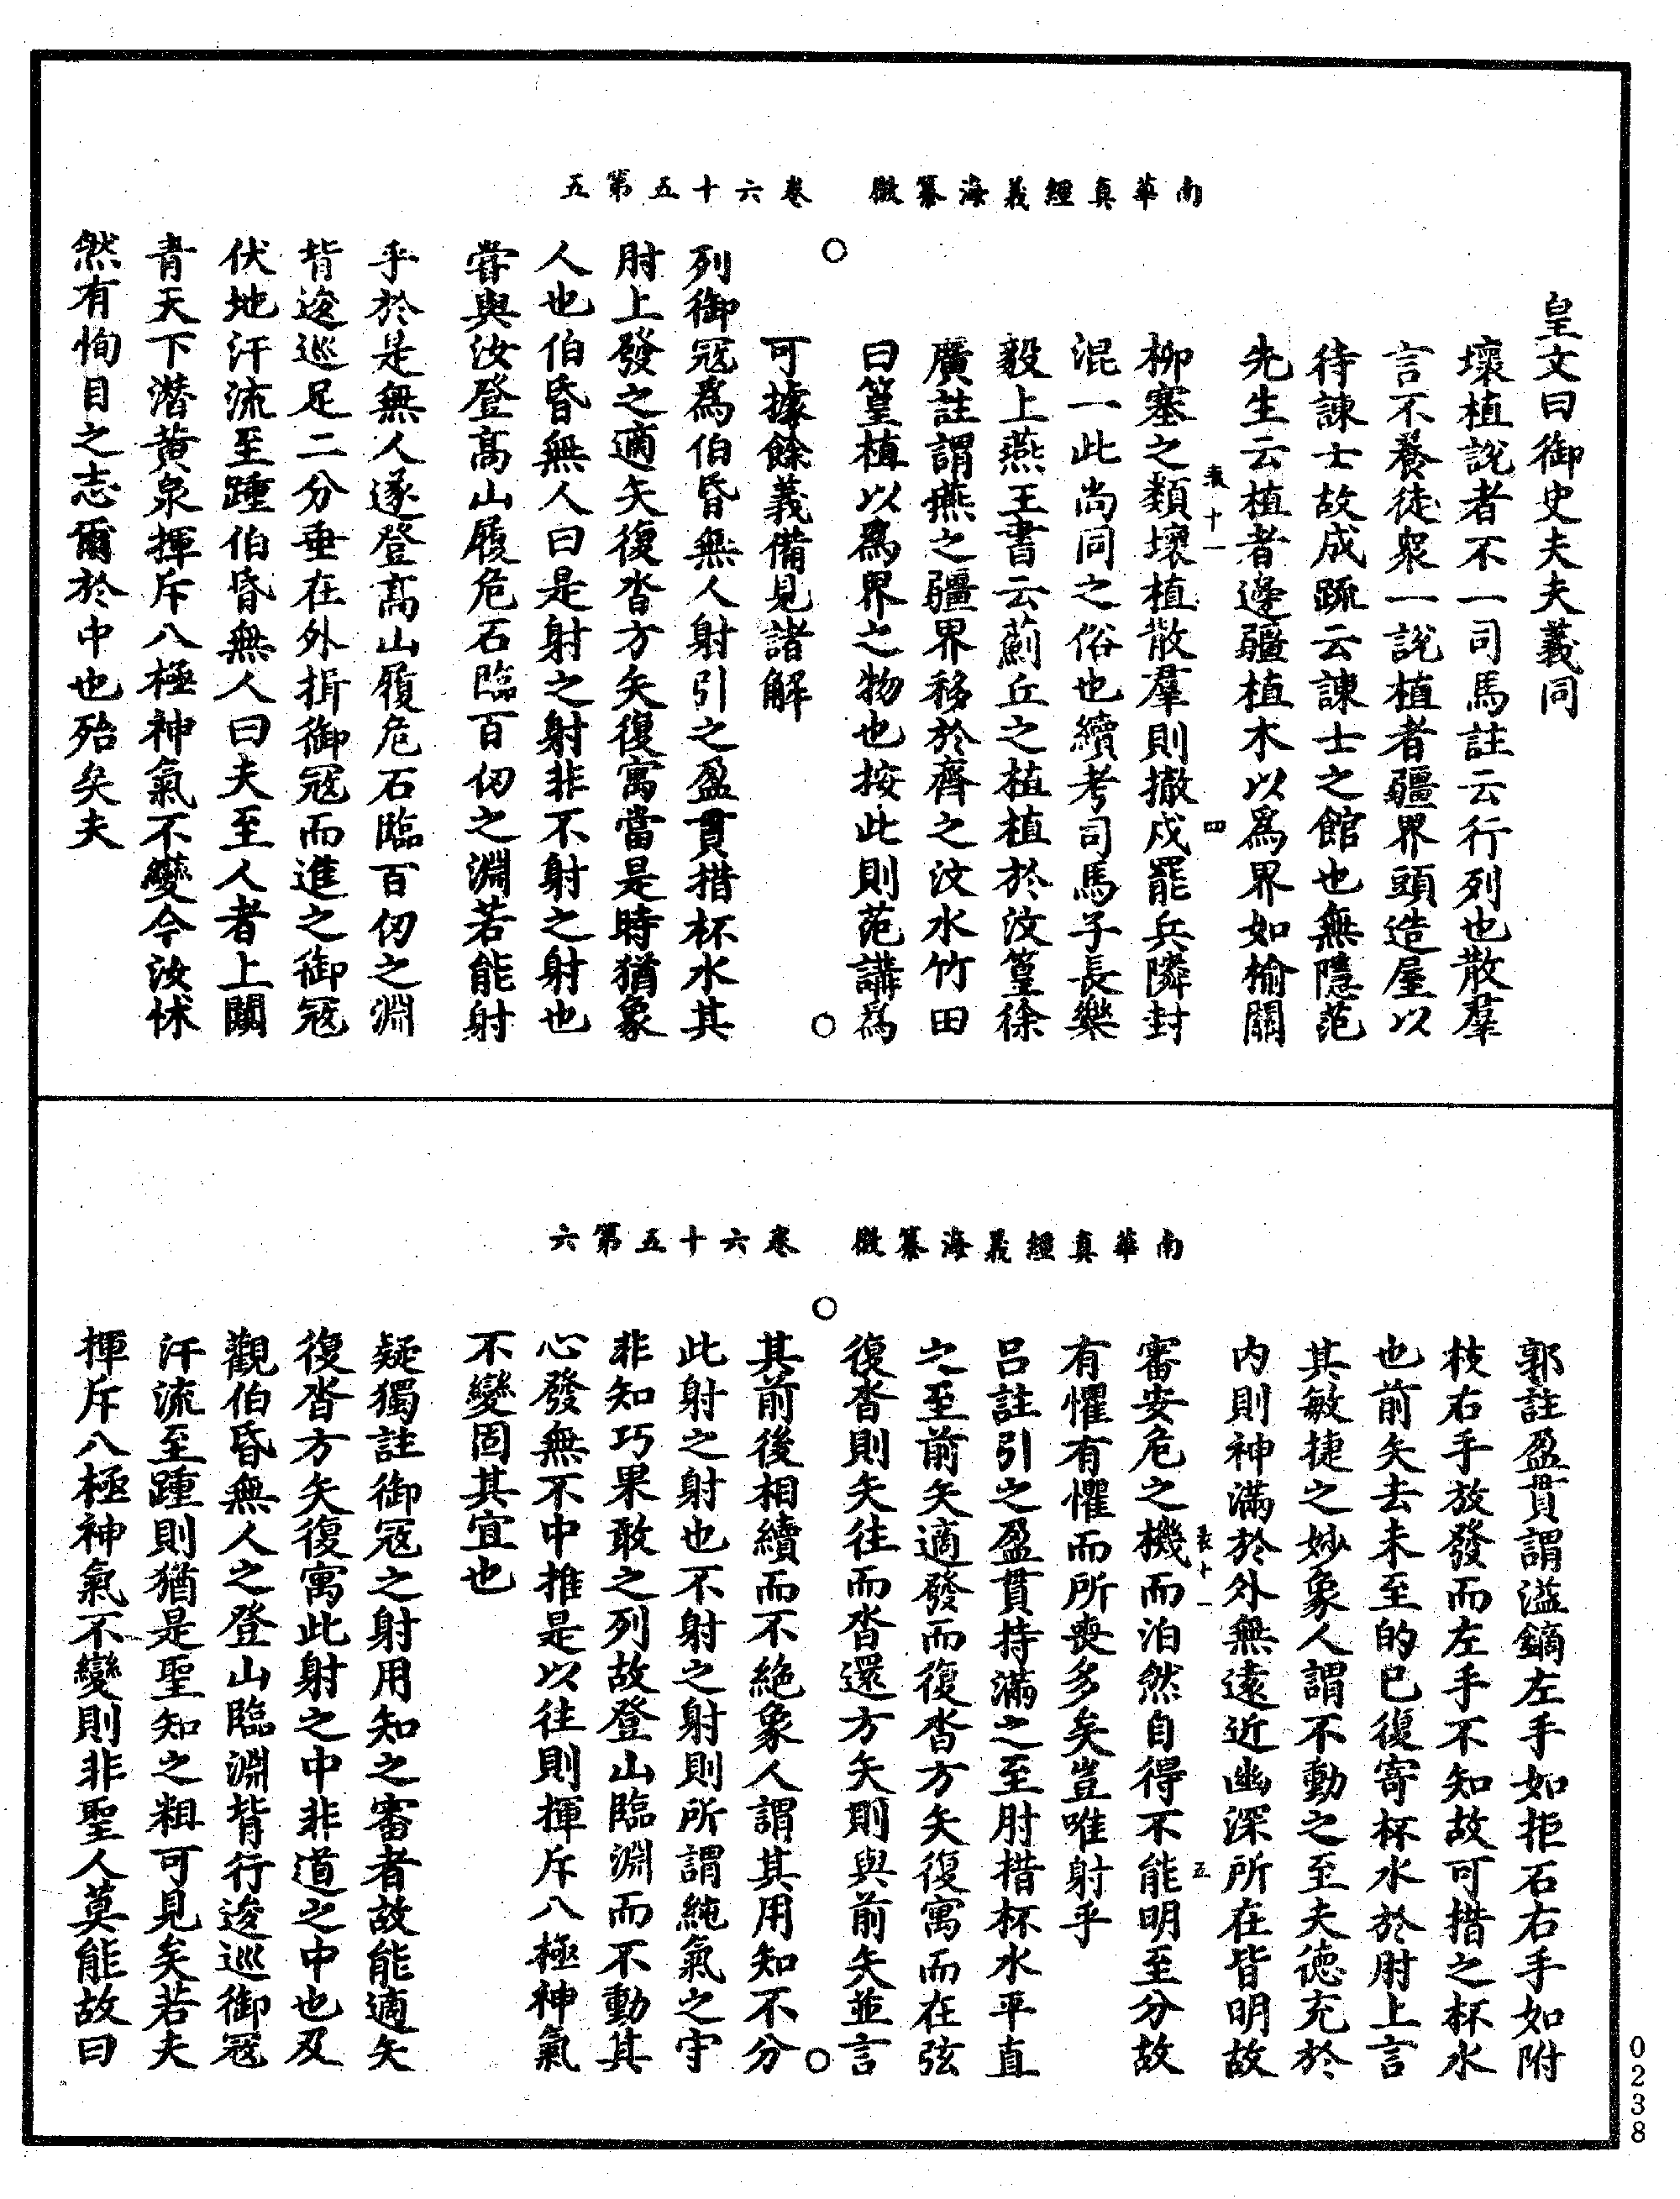 南華真經義海纂微　卷六十五第五
皇文曰御史夫夫義同
壞植說者不一司馬註云行列也散羣
言不養徒衆一說植者疆界頭造屋以
待諫士故成疏云諫士之館也無隱范
先生云植者邊疆植木以爲界如榆關
柳塞之類壞植散羣則撤戍罷兵隣封
表十一　四
混一此尚同之俗也續考司馬子長樂
毅上燕王書云薊丘之植植於汶篁徐
廣註謂燕之疆界移於齊之汶水竹田
曰篁植以爲界之物也按此則范講爲
○　○
可據餘義備見諸解
列御寇爲伯昏無人射引之盈貫措杯水其
肘上發之適矢復沓方矢復寓當是時猶象
人也伯昏無人曰是射之射非不射之射也
嘗與汝登高山履危石臨百仞之淵若能射
乎於是無人遂登高山履危石臨百仞之淵
背逡巡足二分垂在外揖御寇而進之御寇
伏地汗流至踵伯昏無人曰夫至人者上闚
青天下潛黃泉揮斥八極神氣不變今汝怵
然有恂目之志爾於中也殆矣夫
南華真經義海纂微　卷六十五第六
郭註盈貫謂溢鏑左手如拒石右手如附
枝右手放發而左手不知故可措之杯水
也前矢去未至的已復寄杯水於肘上言
其敏捷之妙象人謂不動之至夫德充於
內則神滿於外無遠近幽深所在皆明故
表十一　五
審安危之機而泊然自得不能明至分故
有懼有懼而所喪多矣豈唯射乎
呂註引之盈貫持滿之至肘措杯水平直
之至前矢適發而復沓方矢復寓而在弦
復沓則矢往而沓還方矢則與前矢並言
○　○
其前後相續而不絶象人謂其用知不分
此射之射也不射之射則所謂純氣之守
非知巧果敢之列故登山臨淵而不動其
心發無不中推是以往則揮斥八極神氣
不變固其宜也
疑獨註御寇之射用知之審者故能適矢
復沓方矢復寓此射之中非道之中也及
觀伯昏無人之登山臨淵背行逡巡御寇
汗流至踵則猶是聖知之粗可見矣若夫
揮斥八極神氣不變則非聖人莫能故曰
0238